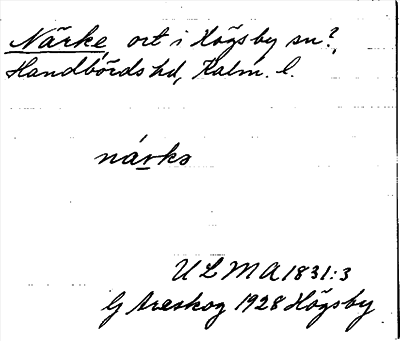 Närke, ort i Högsby sn?,
Handbörds hd, Kalm. l.
närkə
ULMA 1831:3
G Areskog 1928 Högsby